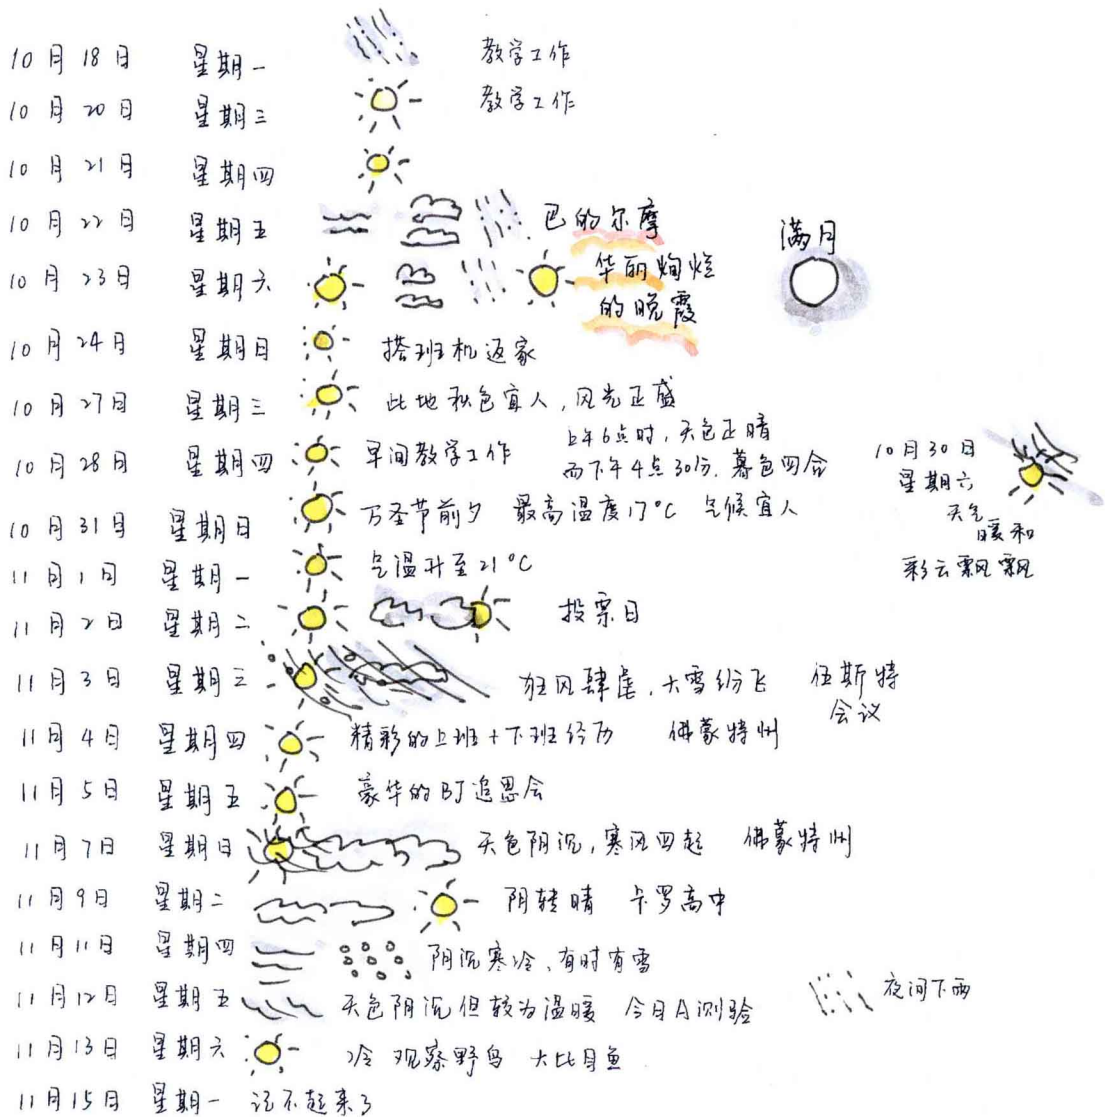 10月18日 星期一 教学工作
10月20日 星期三 教学工作
10月21日 星期四
10月22日 星期五 巴的尔摩
满月
10月23日 星期六 华丽绚烂
的晚霞
10月24日 星期日 搭班机返家
10月27日 星期三 此地秋色宜人,风光正盛
10月28日 星期四 早间教学工作 上午6点时,天色正晴
而下午4点30分,暮色四合
10月30日
星期六
天气
暖和
彩云飘飘
10月31日 星期日 万圣节前夕 最高温度17°C 气候宜人
11月1日 星期一 气温升至21°C
11月2日 星期二 投票日
11月3日 星期三 狂风肆虐,大雪纷飞 伍斯特
会议
11月4日 星期四 精彩的上班+下班经历 佛蒙特州
11月5日 星期五 豪华的BJ追思会
11月7日 星期日 天色阴沉,寒风四起 佛蒙特州
11月9日 星期二 阴转晴 卡罗高中
11月11日 星期四 阴沉寒冷,有时有雪
11月12日 星期五 天色阴沉但较为温暖 今日A测验 夜间下雨
11月13日 星期六 冷 观察野鸟 大比目鱼
11月15日 星期一 记不起来了